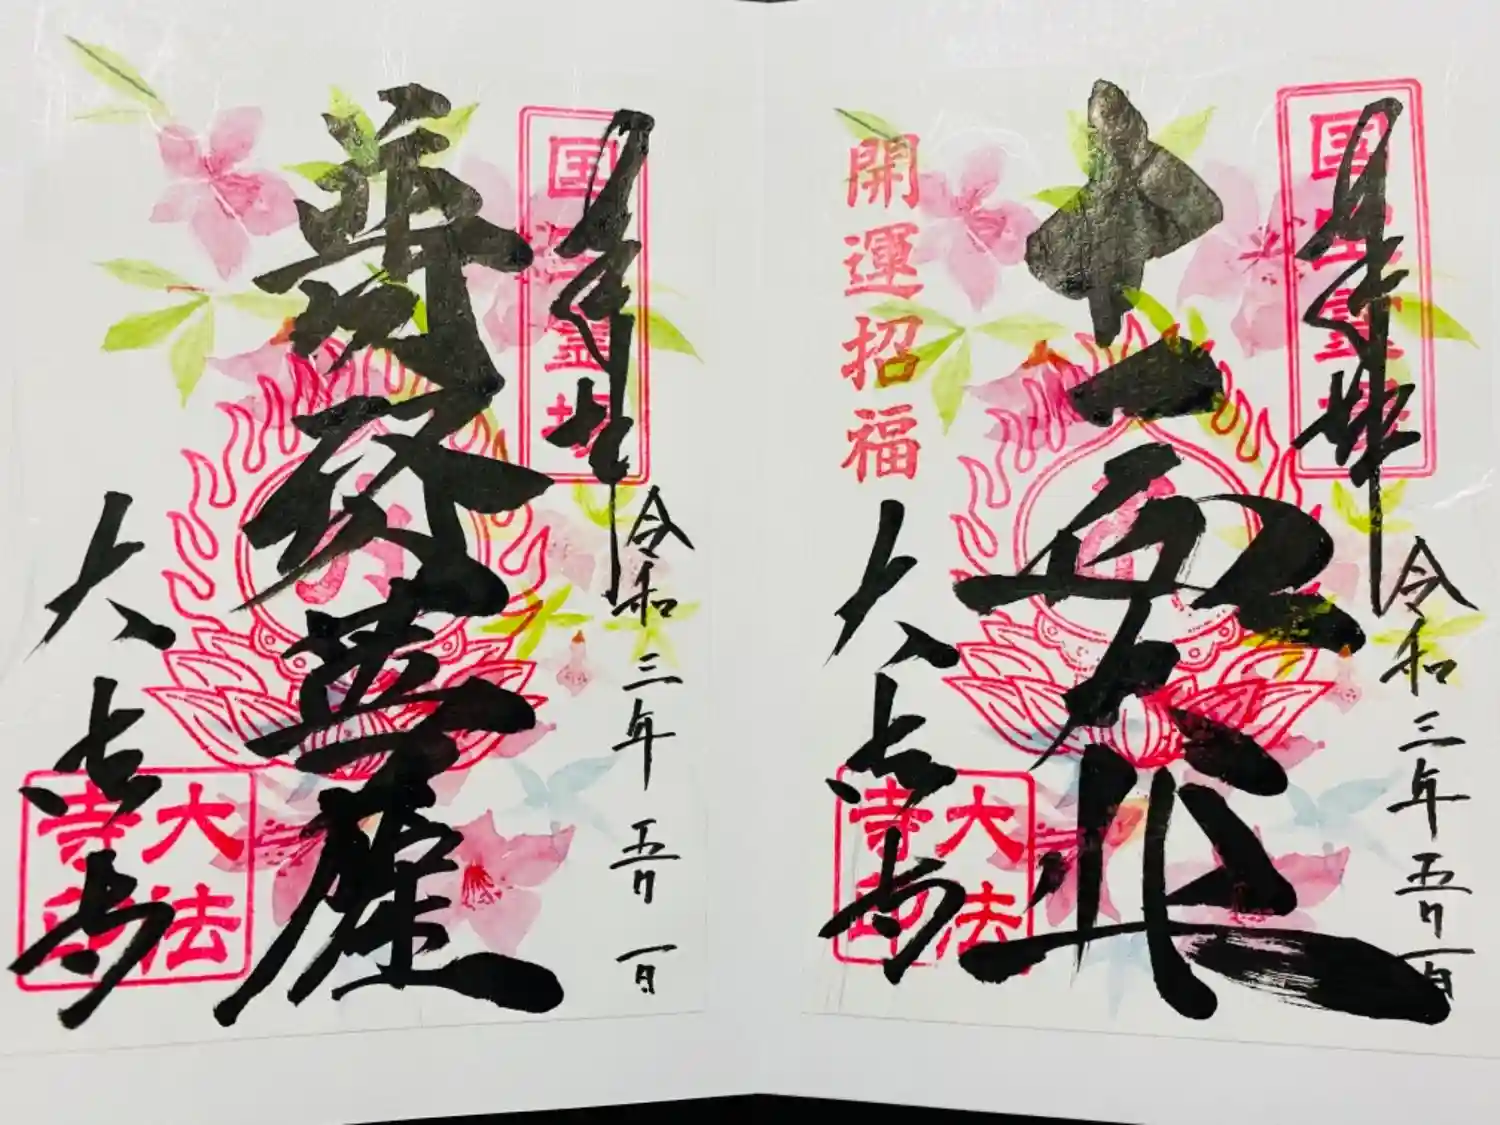 国宝霊場
奉拝
令和三年五月一日
十一面大悲
開運招福
大法寺
大法寺印
国宝霊場
奉拝
令和三年五月一日
普賢菩薩
大法寺
大法寺印